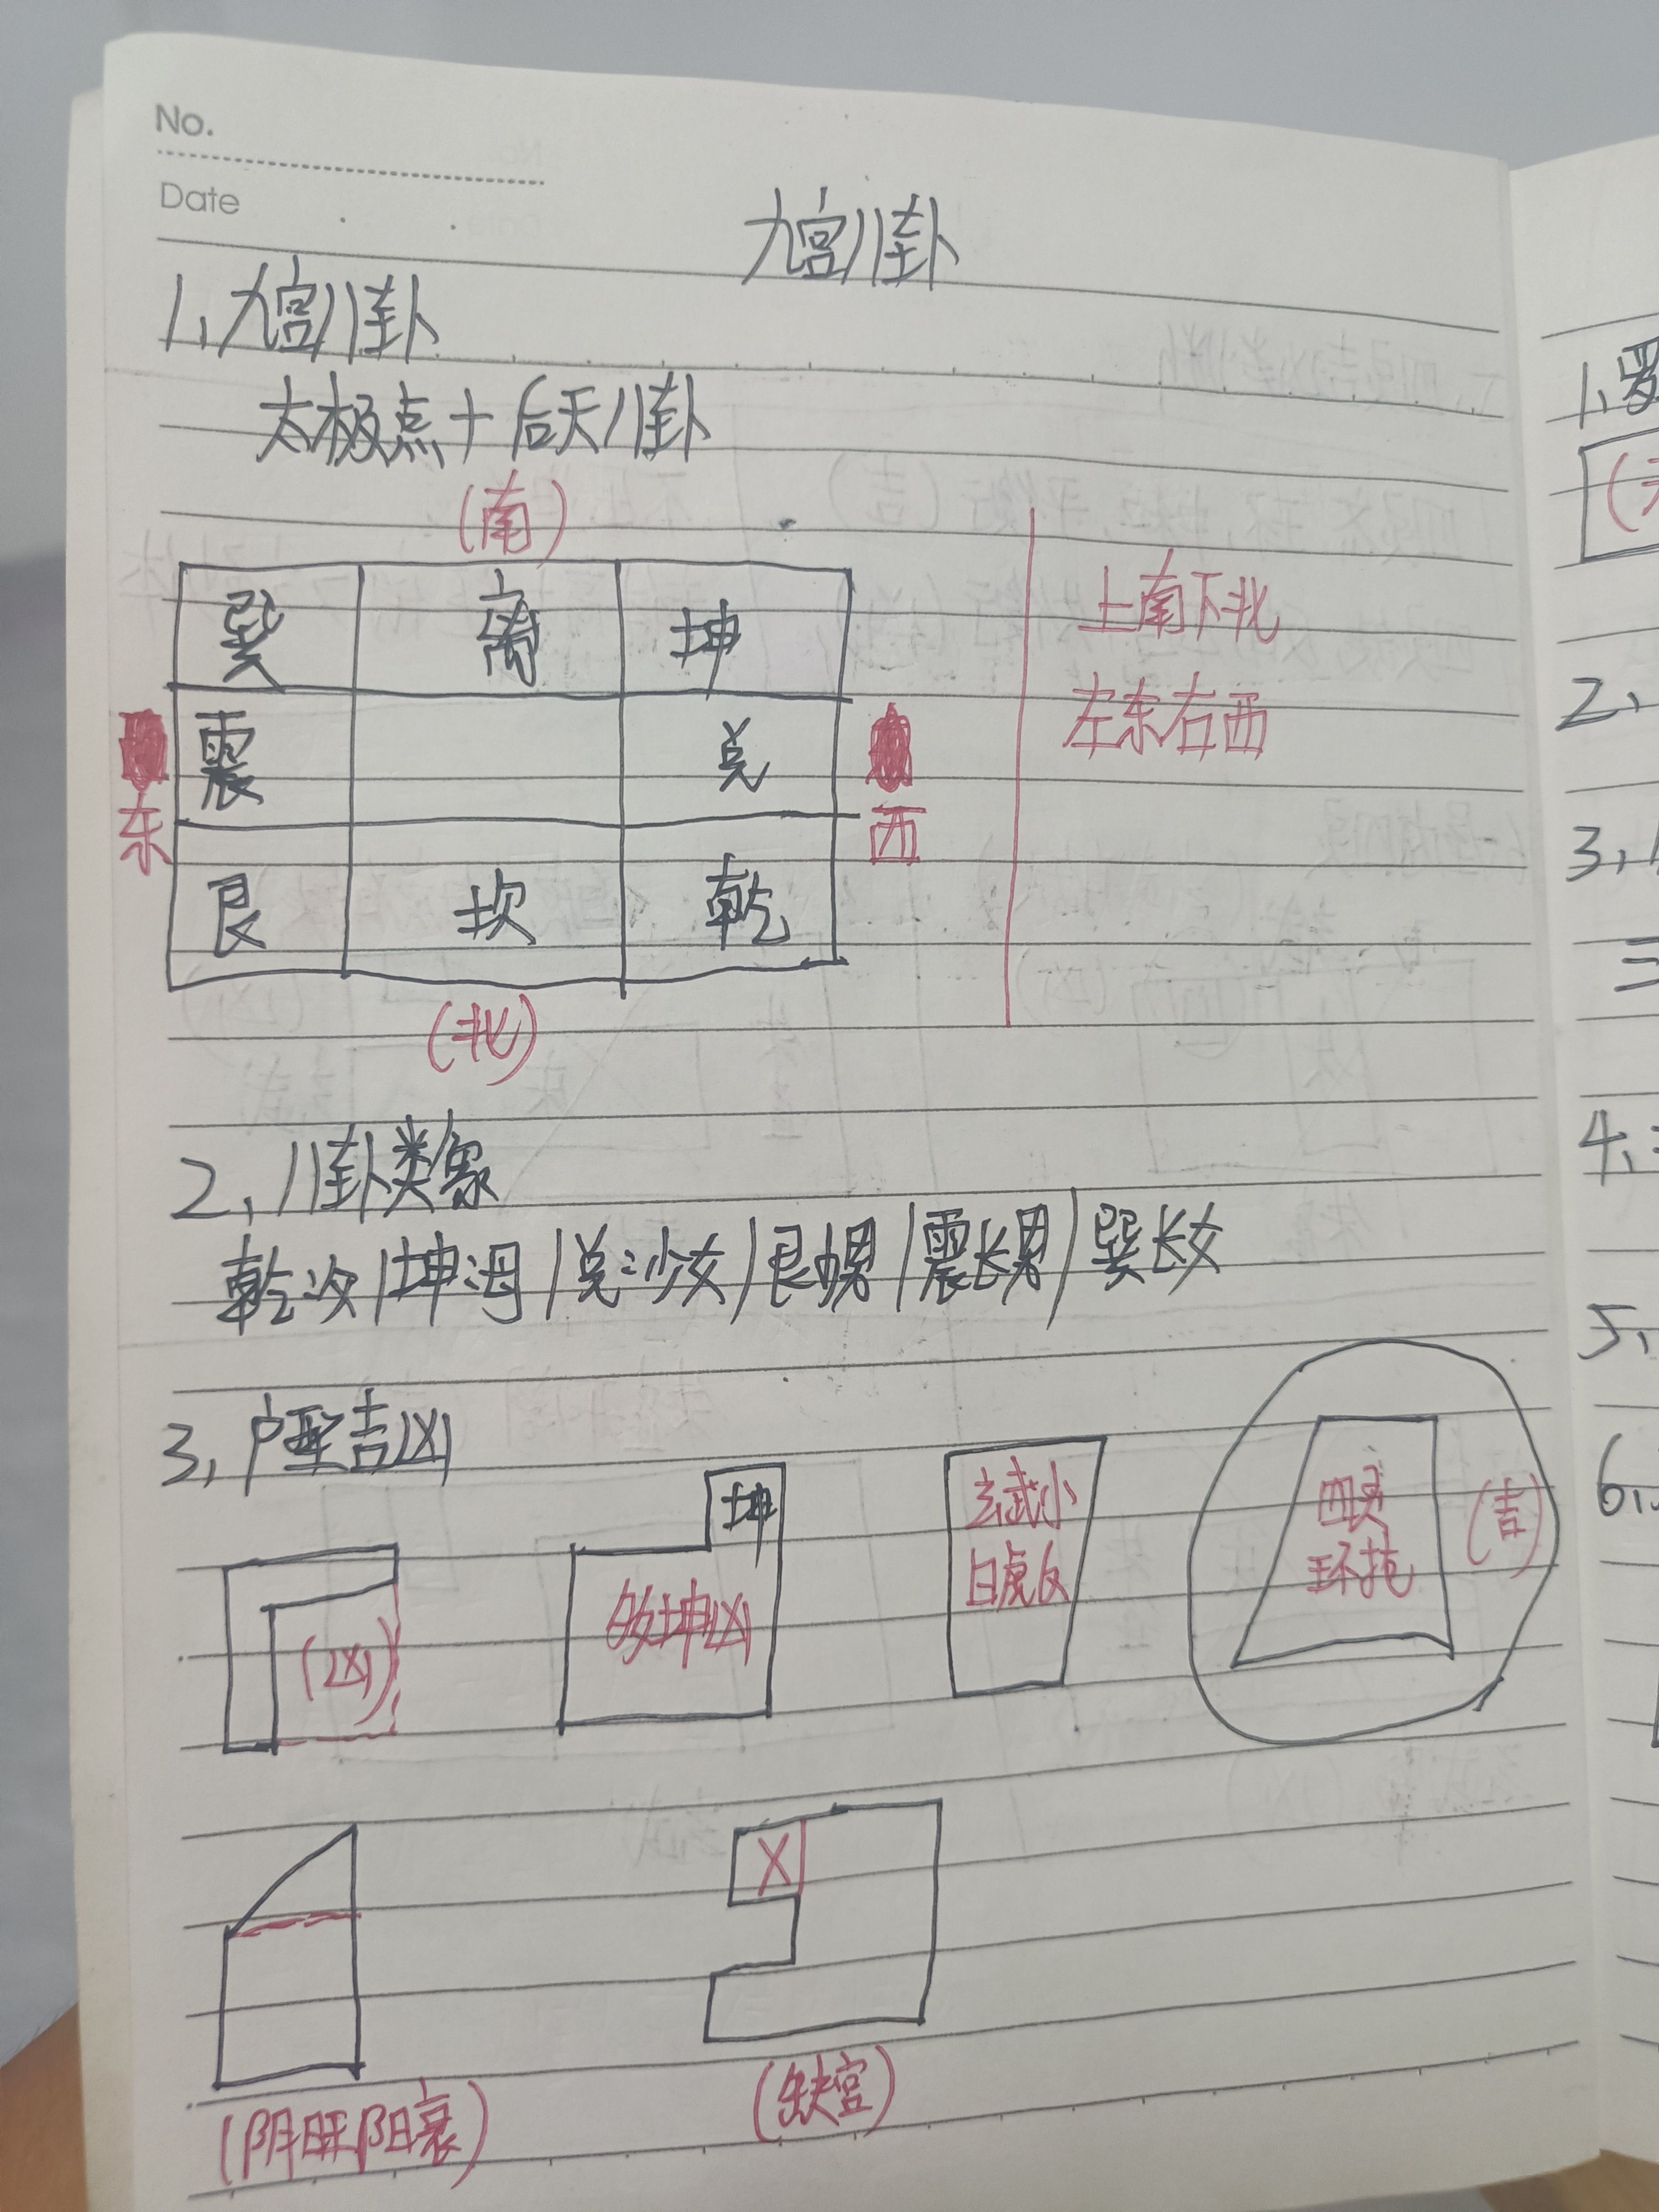 No.
Date
九宫八卦
1、九宫八卦
太极点+后天八卦
(南)
巽 离 坤
震 兑
东 西
艮 坎 乾
(北)
上南下北
左东右西
2、八卦类象
乾父/坤母/兑少女/艮少男/震长男/巽长女
3、户型吉凶
(凶)
坤
多坤凶
玄武小
白虎反
四灵
环抱
(吉)
X
(阴旺阳衰)
(缺宫)
1、罗
2、
3、
4、
5、
6、